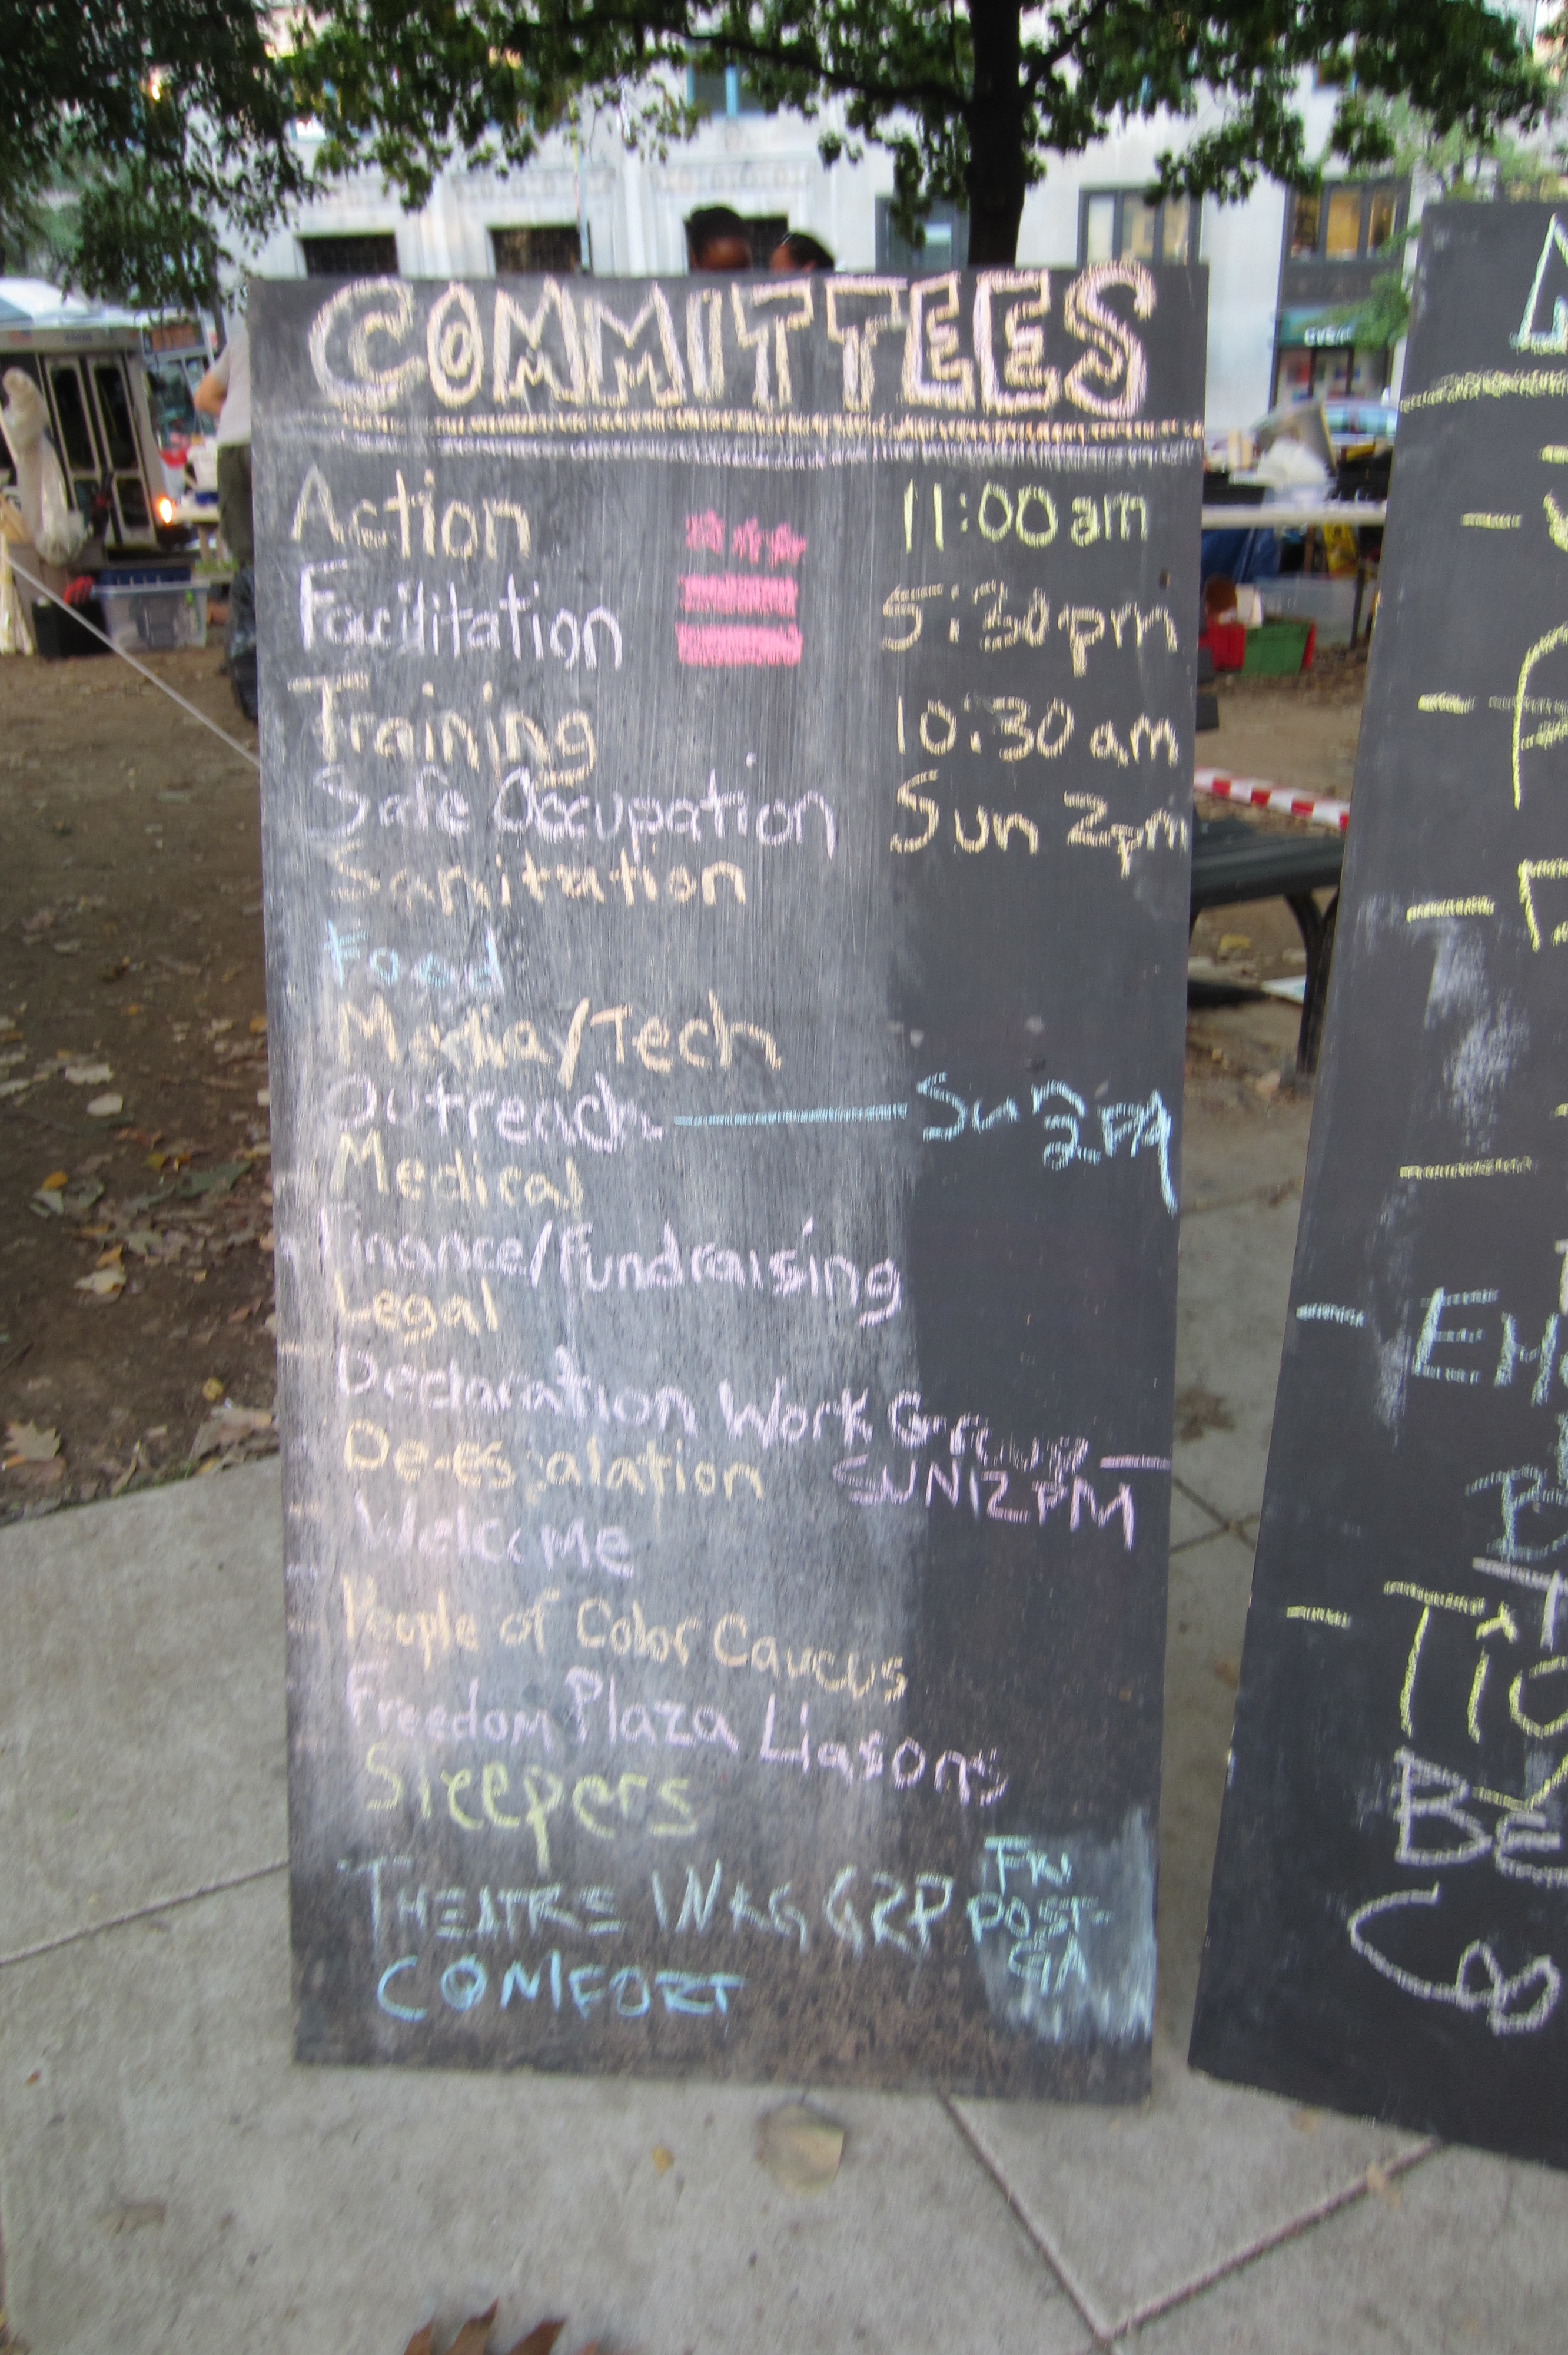 COMMITTEES
Action 11:00 am
Facilitation 5:30 pm
Training 10:30 am
Safe Occupation Sun 2pm
Sanitation
Food
Media/Tech
Outreach — Sun 2PM
Medical
Finance/Fundraising
Legal
Declaration Work Group —
SUN 12 PM
De-escalation
Welcome
People of Color Caucus
Freedom Plaza Liasons
Sleepers
THEATRE WKG GRP FRI POST-GA
COMFORT